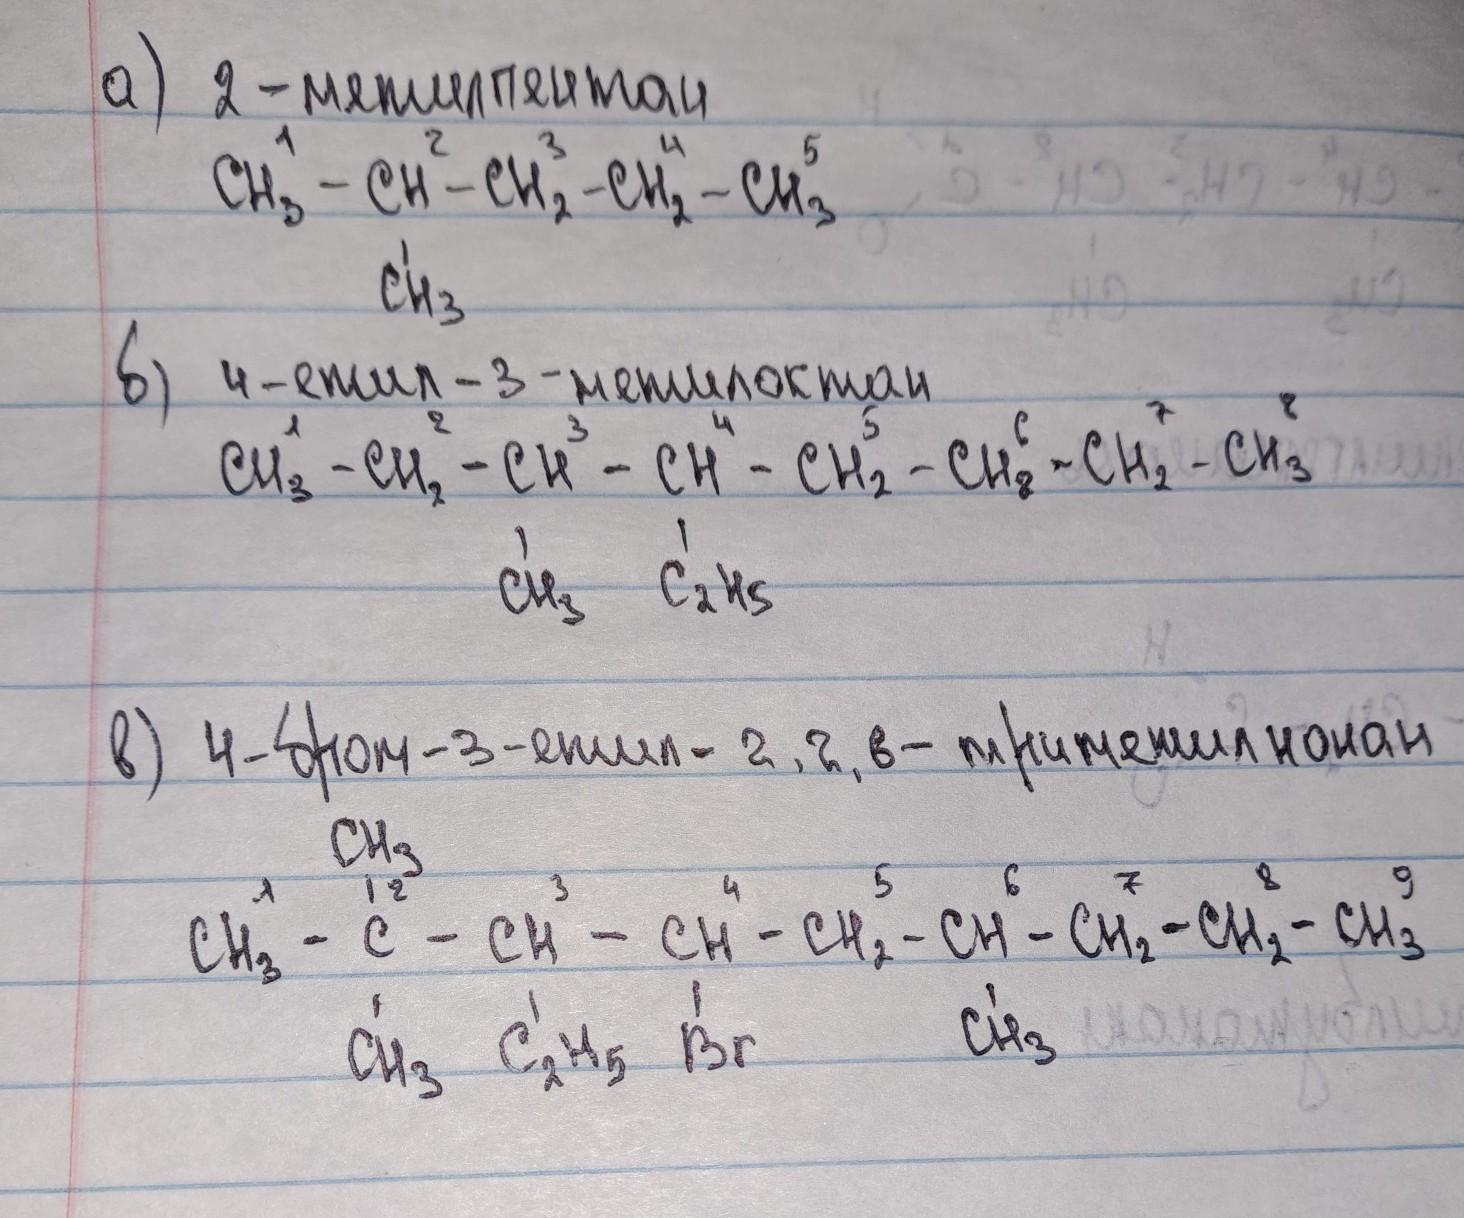 а) 2-метилпентан
CH₃¹ - CH² - CH₂³ - CH₂⁴ - CH₃⁵
CH₃
б) 4-етил-3-метилоктан
CH₃¹ - CH₂² - CH³ - CH⁴ - CH₂⁵ - CH₂⁶ - CH₂⁷ - CH₃⁸
CH₃ C₂H₅
в) 4-бром-3-етил-2,2,6-триметилнонан
CH₃
CH₃¹ - C² - CH³ - CH⁴ - CH₂⁵ - CH⁶ - CH₂⁷ - CH₂⁸ - CH₃⁹
CH₃ C₂H₅ Br CH₃